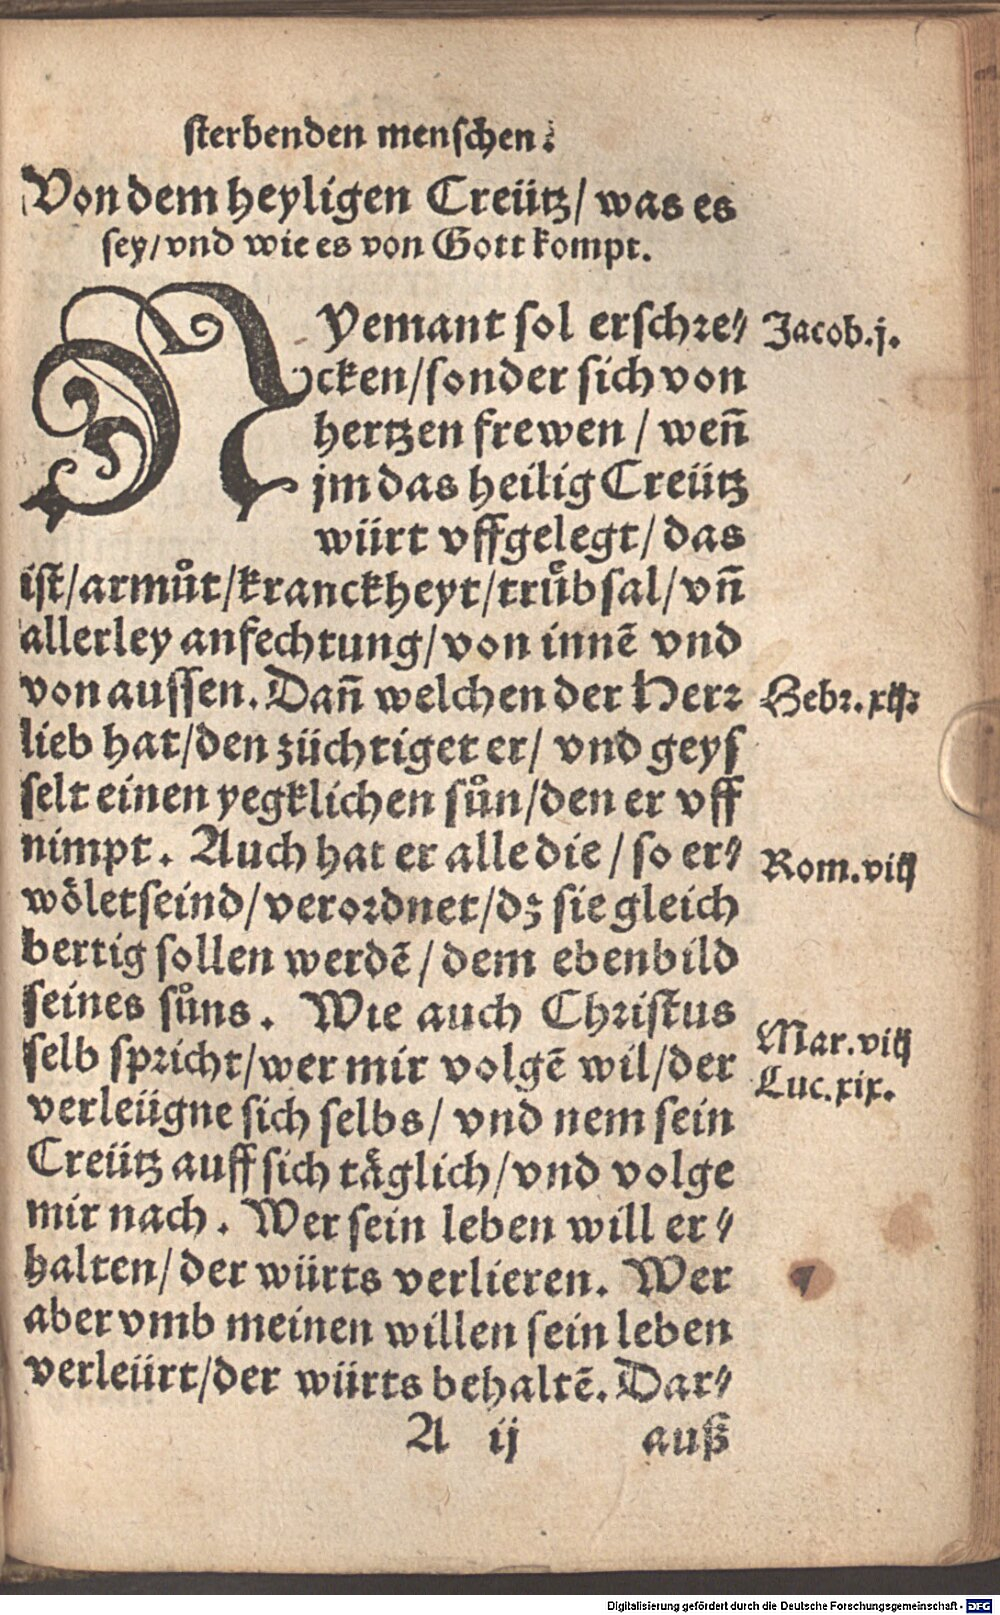 sterbenden menschen.
Von dem heyligen Creütz/ was es
sey/vnd wie es von Gott kompt.
NYemant sol erschre⸗
cken/sonder sich von
hertzen frewen / weñ
jm das heilig Creütz
würt vffgelegt/ das
ist/armůt/kranckheyt/trůbsal/vñ
allerley anfechtung/von innẽ vnd
von aussen. Dañ welchen der Herr
lieb hat/den züchtiget er/ vnd geys
selt einen yegklichen sůn/den er vff
nimpt. Auch hat er alle die / so er⸗
wölet seind/verordnet/dz sie gleich
bertig sollen werdẽ/dem ebenbild
seines sůns. Wie auch Christus
selb spricht/wer mir volgẽ wil/der
verleügne sich selbs/ vnd nem sein
Creütz auff sich tåglich/vnd volge
mir nach. Wer sein leben will er⸗
halten/ der würts verlieren. Wer
aber vmb meinen willen sein leben
verleürt/der würts behaltẽ. Dar⸗
A ij auß
Jacob.j.
Hebr.xij.
Rom.viij
Mar.viij
Luc.xix.
Digitalisierung gefördert durch die Deutsche Forschungsgemeinschaft - DFG